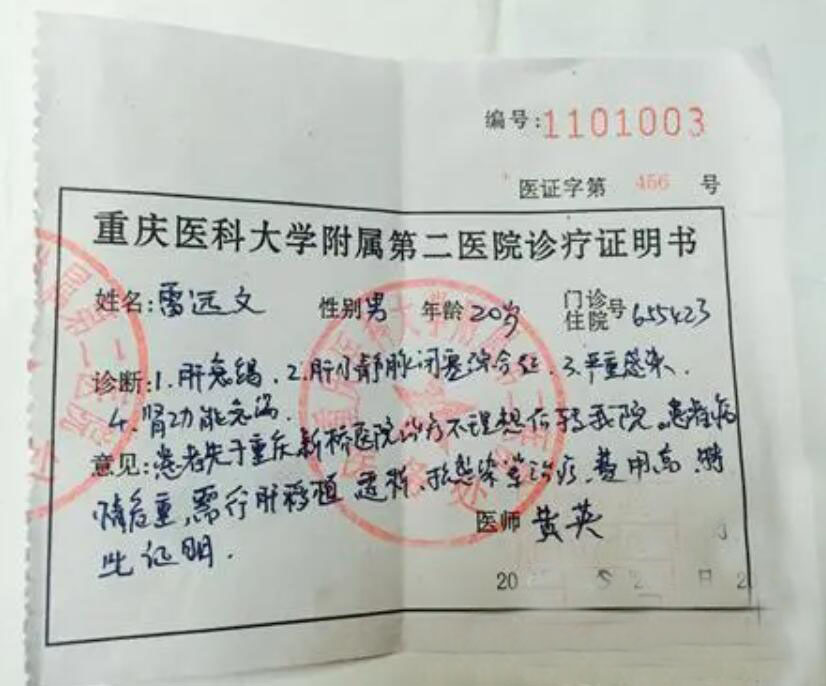 编号:1101003
医证字第 456 号
重庆医科大学附属第二医院诊疗证明书
姓名:雷远文 性别男 年龄20岁 门诊住院号655423
诊断:1.肝衰竭.2.肝小静脉闭塞综合征.3.严重感染.
4.肾功能衰竭.
意见:患者先于重庆新桥医院治疗不理想后转我院。患者病
情危重,需行肝移植 透析、抗感染等治疗,费用高,特
此证明.
医师 黄英
20 日